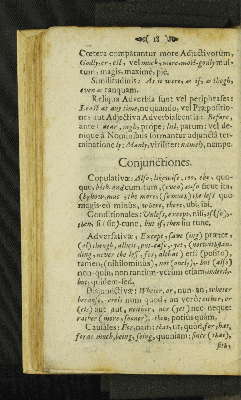 18
Cœtera comparantur more Adjectivorum,
Godly-er, est, vel much, more, most-godly mul-
tum; magis, maximè, piè.
Similitudinis: As it were, as if, as thogh,
even as tanquam.
Reliqua Adverbia sunt vel periphrases:
Least at any time, nequando, vel Præpositio-
nes aut Adjectiva Adverbiascentia: Before,
ante: near, nigh, prope; hil, parum vel de-
nique à Nominibus formantur adjunctâ ter-
minatione ly: Manly, viriliter: namely, nempe.
Conjunctiones.
Copulativæ: Also, likewise, too, eke, quo-
que, both and cum, tum, (even) as so sicut ita,
(by) how, much the more (so much) the less quo
magis eo minus, where, there, ubi, ibi.
Conditionales: Unless, except, nisi, if (so),
then, si (sic) tunc, but if, then sin tunc.
Adversativæ: Except, save (ing) præter,
(al) though, albeit, put-case, yet, (notwithstan-
ding, never the less, for, al that) etsi (posito),
tamen, (nihilominus), not (only), but (also)
non quin, non tantùm verùm etiam, inde
but, quidem sed.
Disjunctivæ: Whether, or, num, an, whether
because, or els num quod, an verò: either, or
(els) aut aut, neither, nor (yet) nec neque:
rather (more, sooner), then, potius quàm.
Causales: For, nam: that, ut, quòd, for, but,
for as much, being, seing, quoniam; since (that),
sith,